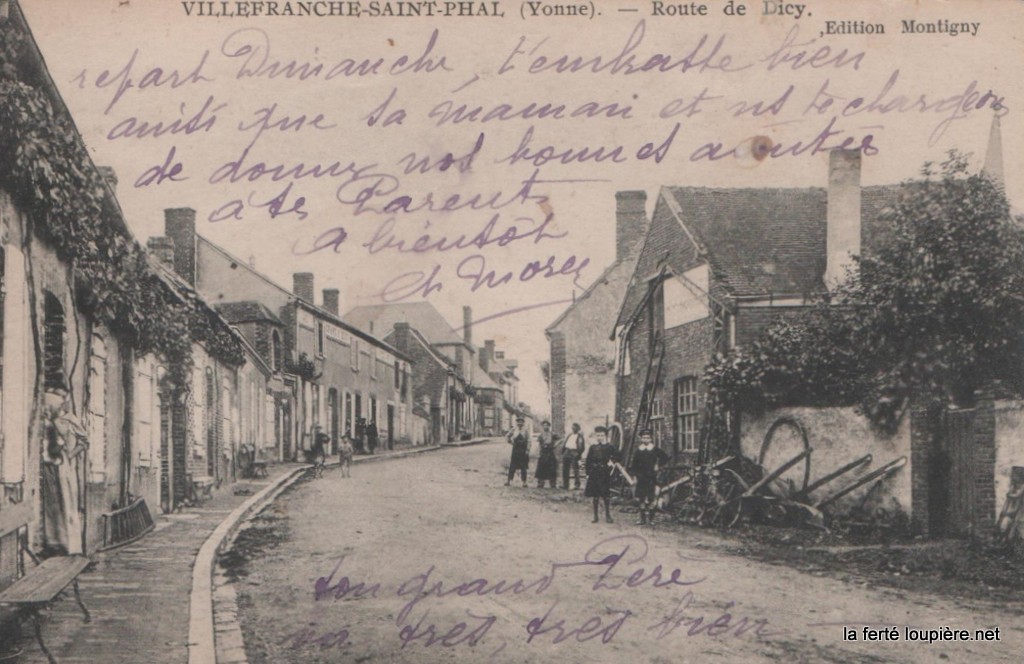 VILLEFRANCHE-SAINT-PHAL (Yonne). — Route de Dicy.
Edition Montigny
repart Dimanche, t'embrasse bien
ainsi que ta maman et ns te chargeons
de donner nos bonnes amitiés
a tes Parents
a bientôt
ton grand Père
va très, très bien
la ferté loupière.net